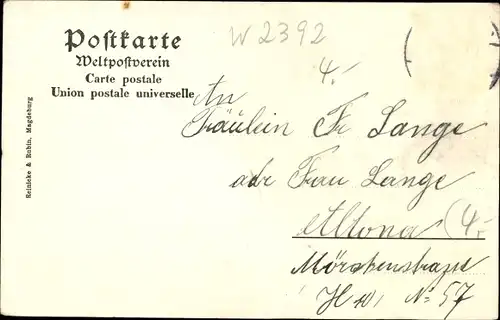 Postkarte
Weltpostverein
Carte postale
Union postale universelle
W 2392
4.-
Reinicke & Rubin, Magdeburg
An
Fräulein Fr Lange
odr Frau Lange
Altona
(4.-
N. 57